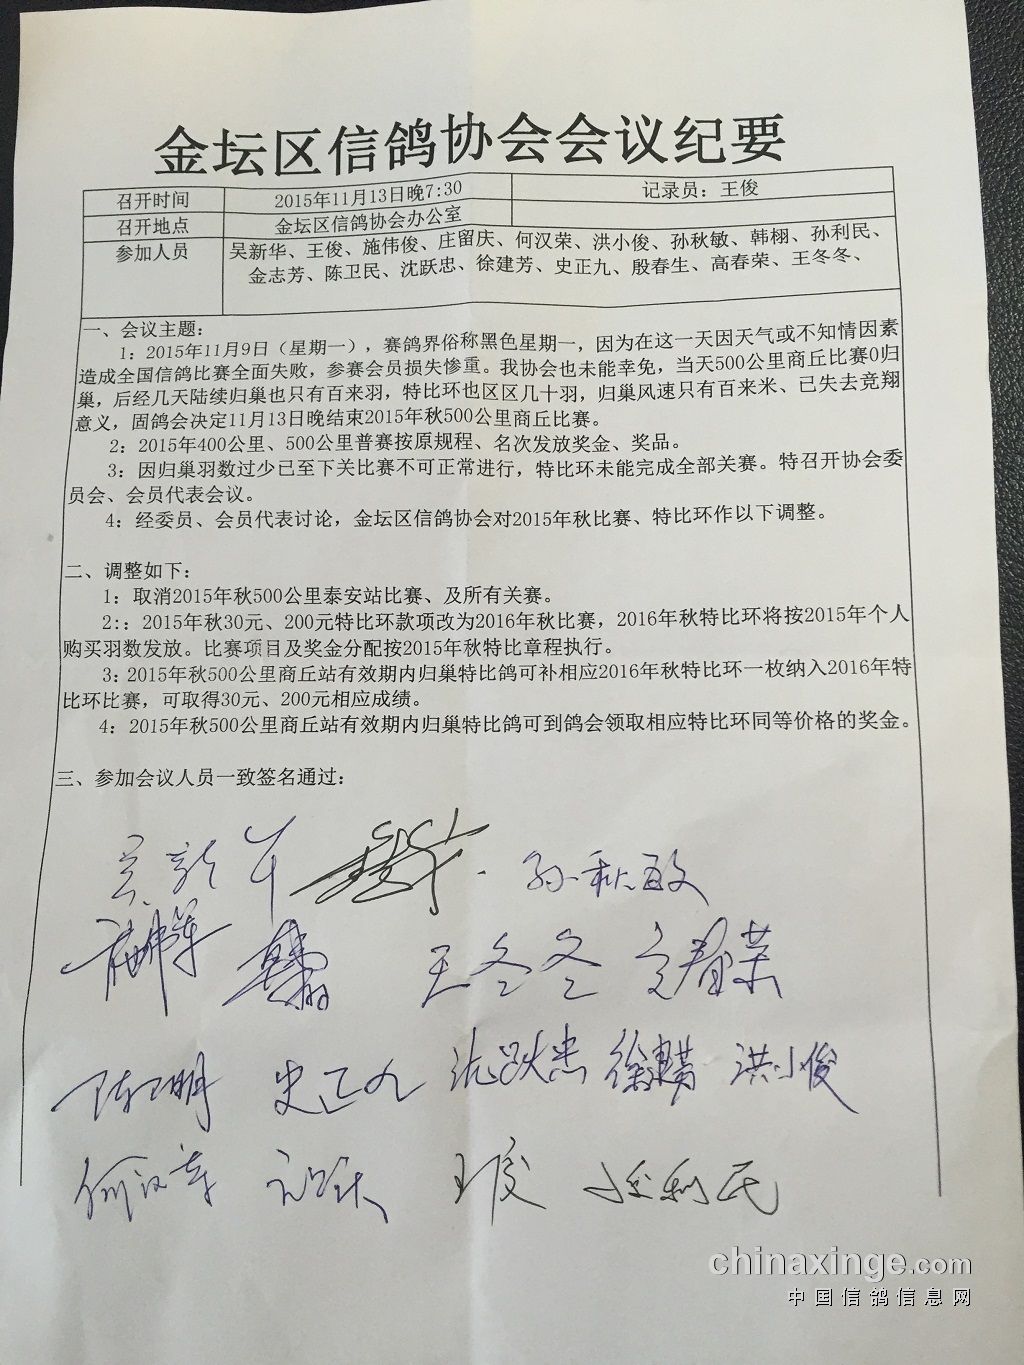 金坛区信鸽协会会议纪要
召开时间 2015年11月13日晚7:30 记录员：王俊
召开地点 金坛区信鸽协会办公室
参加人员 吴新华、王俊、施伟俊、庄留庆、何汉荣、洪小俊、孙秋敏、韩栩、孙利民、
金志芳、陈卫民、沈跃忠、徐建芳、史正九、殷春生、高春荣、王冬冬、
一、会议主题：
1：2015年11月9日（星期一），赛鸽界俗称黑色星期一，因为在这一天因天气或不知情因素
造成全国信鸽比赛全面失败，参赛会员损失惨重。我协会也未能幸免，当天500公里商丘比赛0归
巢，后经几天陆续归巢也只有百来羽，特比环也区区几十羽，归巢风速只有百来米、已失去竞翔
意义，固鸽会决定11月13日晚结束2015年秋500公里商丘比赛。
2：2015年400公里、500公里普赛按原规程、名次发放奖金、奖品。
3：因归巢羽数过少已至下关比赛不可正常进行，特比环未能完成全部关赛。特召开协会委
员会、会员代表会议。
4：经委员、会员代表讨论，金坛区信鸽协会对2015年秋比赛、特比环作以下调整。
二、调整如下：
1：取消2015年秋500公里泰安站比赛、及所有关赛。
2：：2015年秋30元、200元特比环款项改为2016年秋比赛，2016年秋特比环将按2015年个人
购买羽数发放。比赛项目及奖金分配按2015年秋特比章程执行。
3：2015年秋500公里商丘站有效期内归巢特比鸽可补相应2016年秋特比环一枚纳入2016年特
比环比赛，可取得30元、200元相应成绩。
4：2015年秋500公里商丘站有效期内归巢特比鸽可到鸽会领取相应特比环同等价格的奖金。
三、参加会议人员一致签名通过：
吴新华 孙秋敏
施伟军 韩栩 王冬冬 高春荣
史正九 沈跃忠 徐建芳 洪小俊
何汉荣 王俊 孙利民
chinaxinge.com
中国信鸽信息网